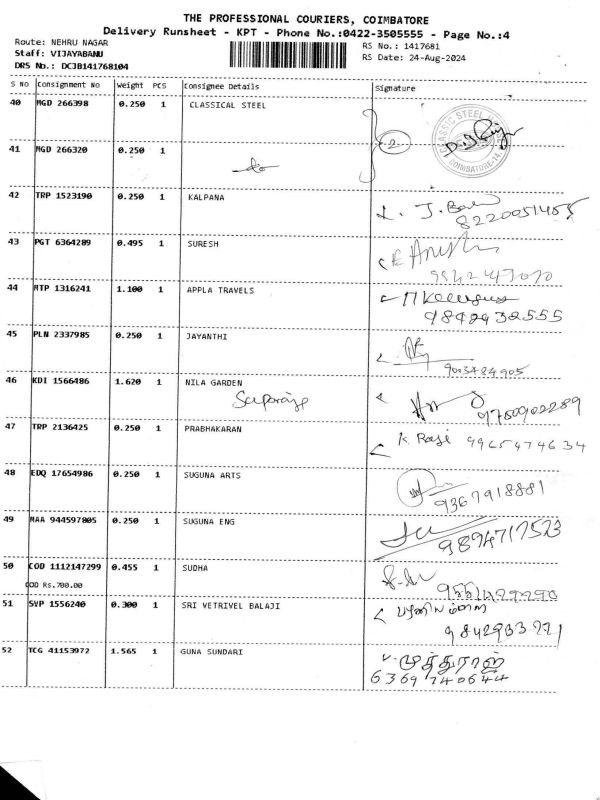 THE PROFESSIONAL COURIERS, COIMBATORE
Delivery Runsheet - KPT - Phone No.:0422-3505555 - Page No.:4
Route: NEHRU NAGAR
Staff: VIJAYABANU
DRS No.: DCJB141768104
RS No.: 1417681
RS Date: 24-Aug-2024
S No Consignment No Weight PCS Consignee Details Signature
40 MGD 266398 0.250 1 CLASSICAL STEEL
CLASSIC STEEL
COIMBATORE-14
2
41 MGD 266320 0.250 1
42 TRP 1523190 0.250 1 KALPANA
8220051455
43 PGT 6364289 0.495 1 SURESH
44 MTP 1316241 1.100 1 APPLA TRAVELS
9842432555
45 PLN 2337985 0.250 1 JAYANTHI
9003484905
46 KDI 1566486 1.620 1 NILA GARDEN
9780902289
47 TRP 2136425 0.250 1 PRABHAKARAN
K. Raji 9965474634
48 EDQ 17654986 0.250 1 SUGUNA ARTS
9367918881
49 MAA 944597805 0.250 1 SUGUNA ENG
9894717523
50 COD 1112147299 0.455 1 SUDHA
COD Rs.700.00
51 SVP 1556240 0.300 1 SRI VETRIVEL BALAJI
9842933771
52 TCG 41153972 1.565 1 GUNA SUNDARI
முத்துராஜ்
6369740644